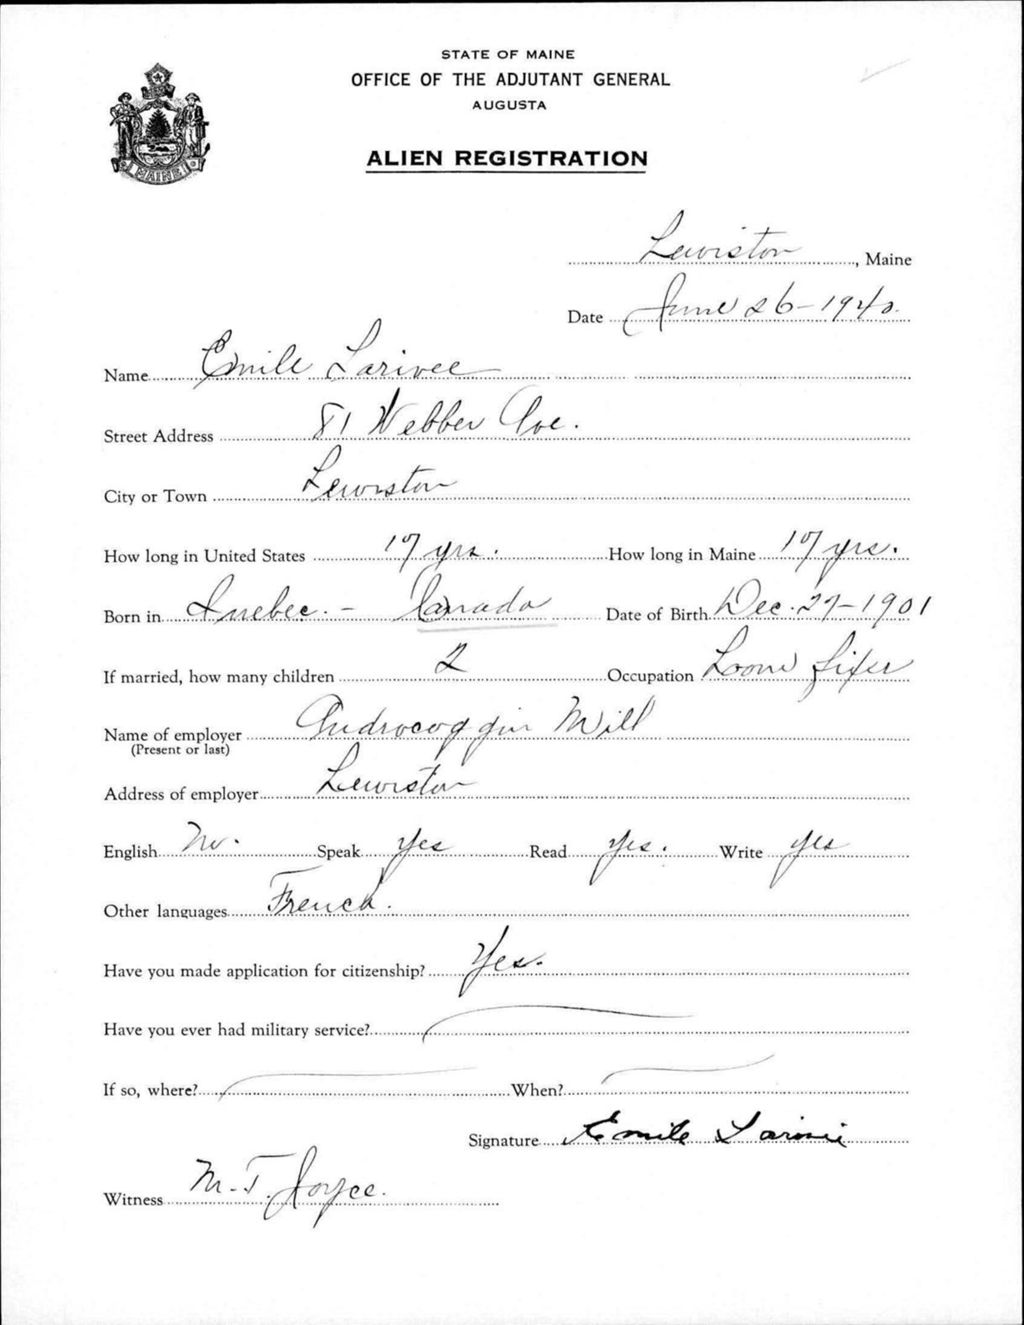 STATE OF MAINE
OFFICE OF THE ADJUTANT GENERAL
AUGUSTA
ALIEN REGISTRATION
MAINE
Lewiston, Maine
Date June 26-1940.
Name Emile Larivee
Street Address 81 Webber Ave.
City or Town Lewiston
How long in United States 17 yrs. How long in Maine 17 yrs.
Born in Quebec. - Canada Date of Birth Dec. 27-1901
If married, how many children 2 Occupation Loom fixer
Name of employer Androcoggin Mill
(Present or last)
Address of employer Lewiston
English No. Speak Yes Read Yes. Write Yes
Other languages French.
Have you made application for citizenship? Yes.
Have you ever had military service?
If so, where? When?
Signature Emile Larivie
Witness M. T. Joyce.